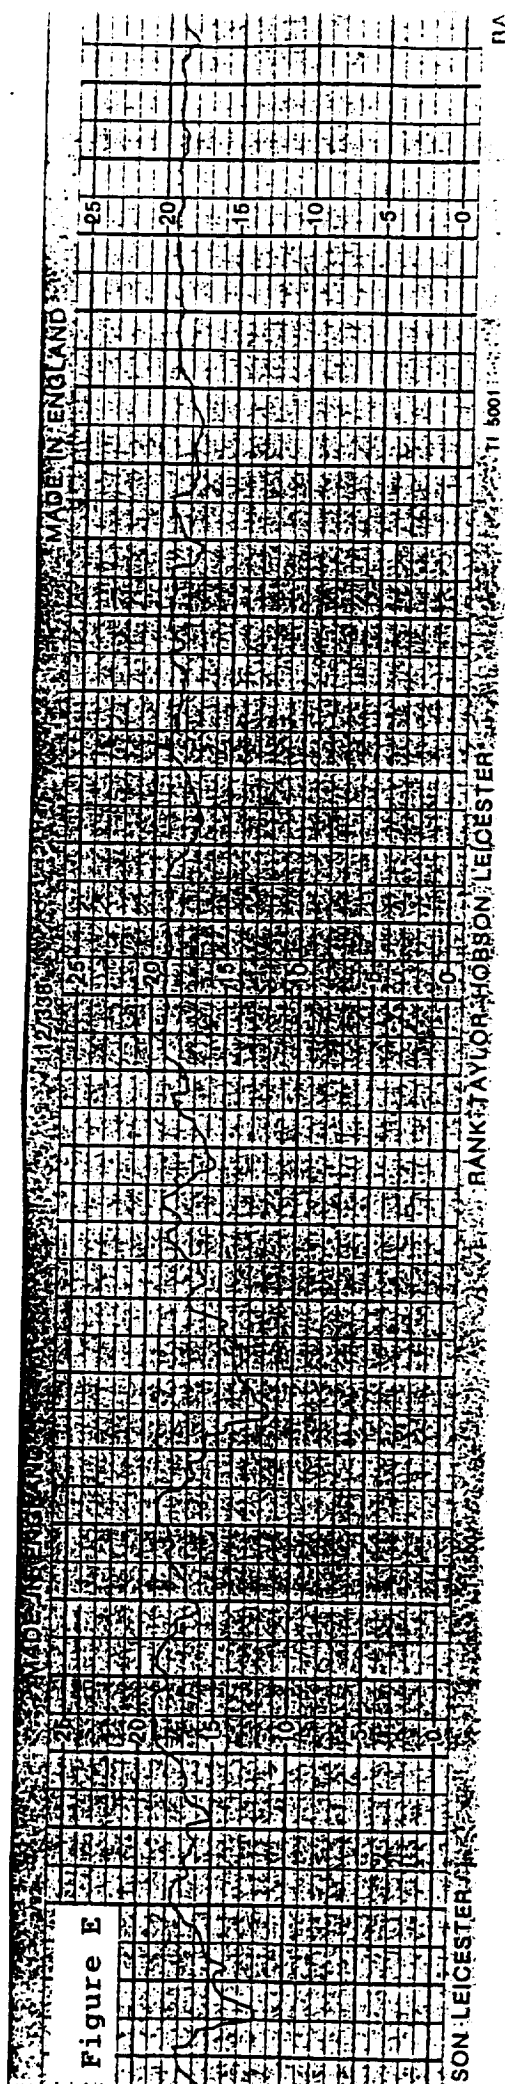 Figure E
MADE IN ENGLAND
MADE IN ENGLAND
112/338
25
20
15
10
5
0
25
20
15
10
5
0
25
20
15
10
5
0
SON LEICESTER
RANK TAYLOR HOBSON LEICESTER
TI 5001